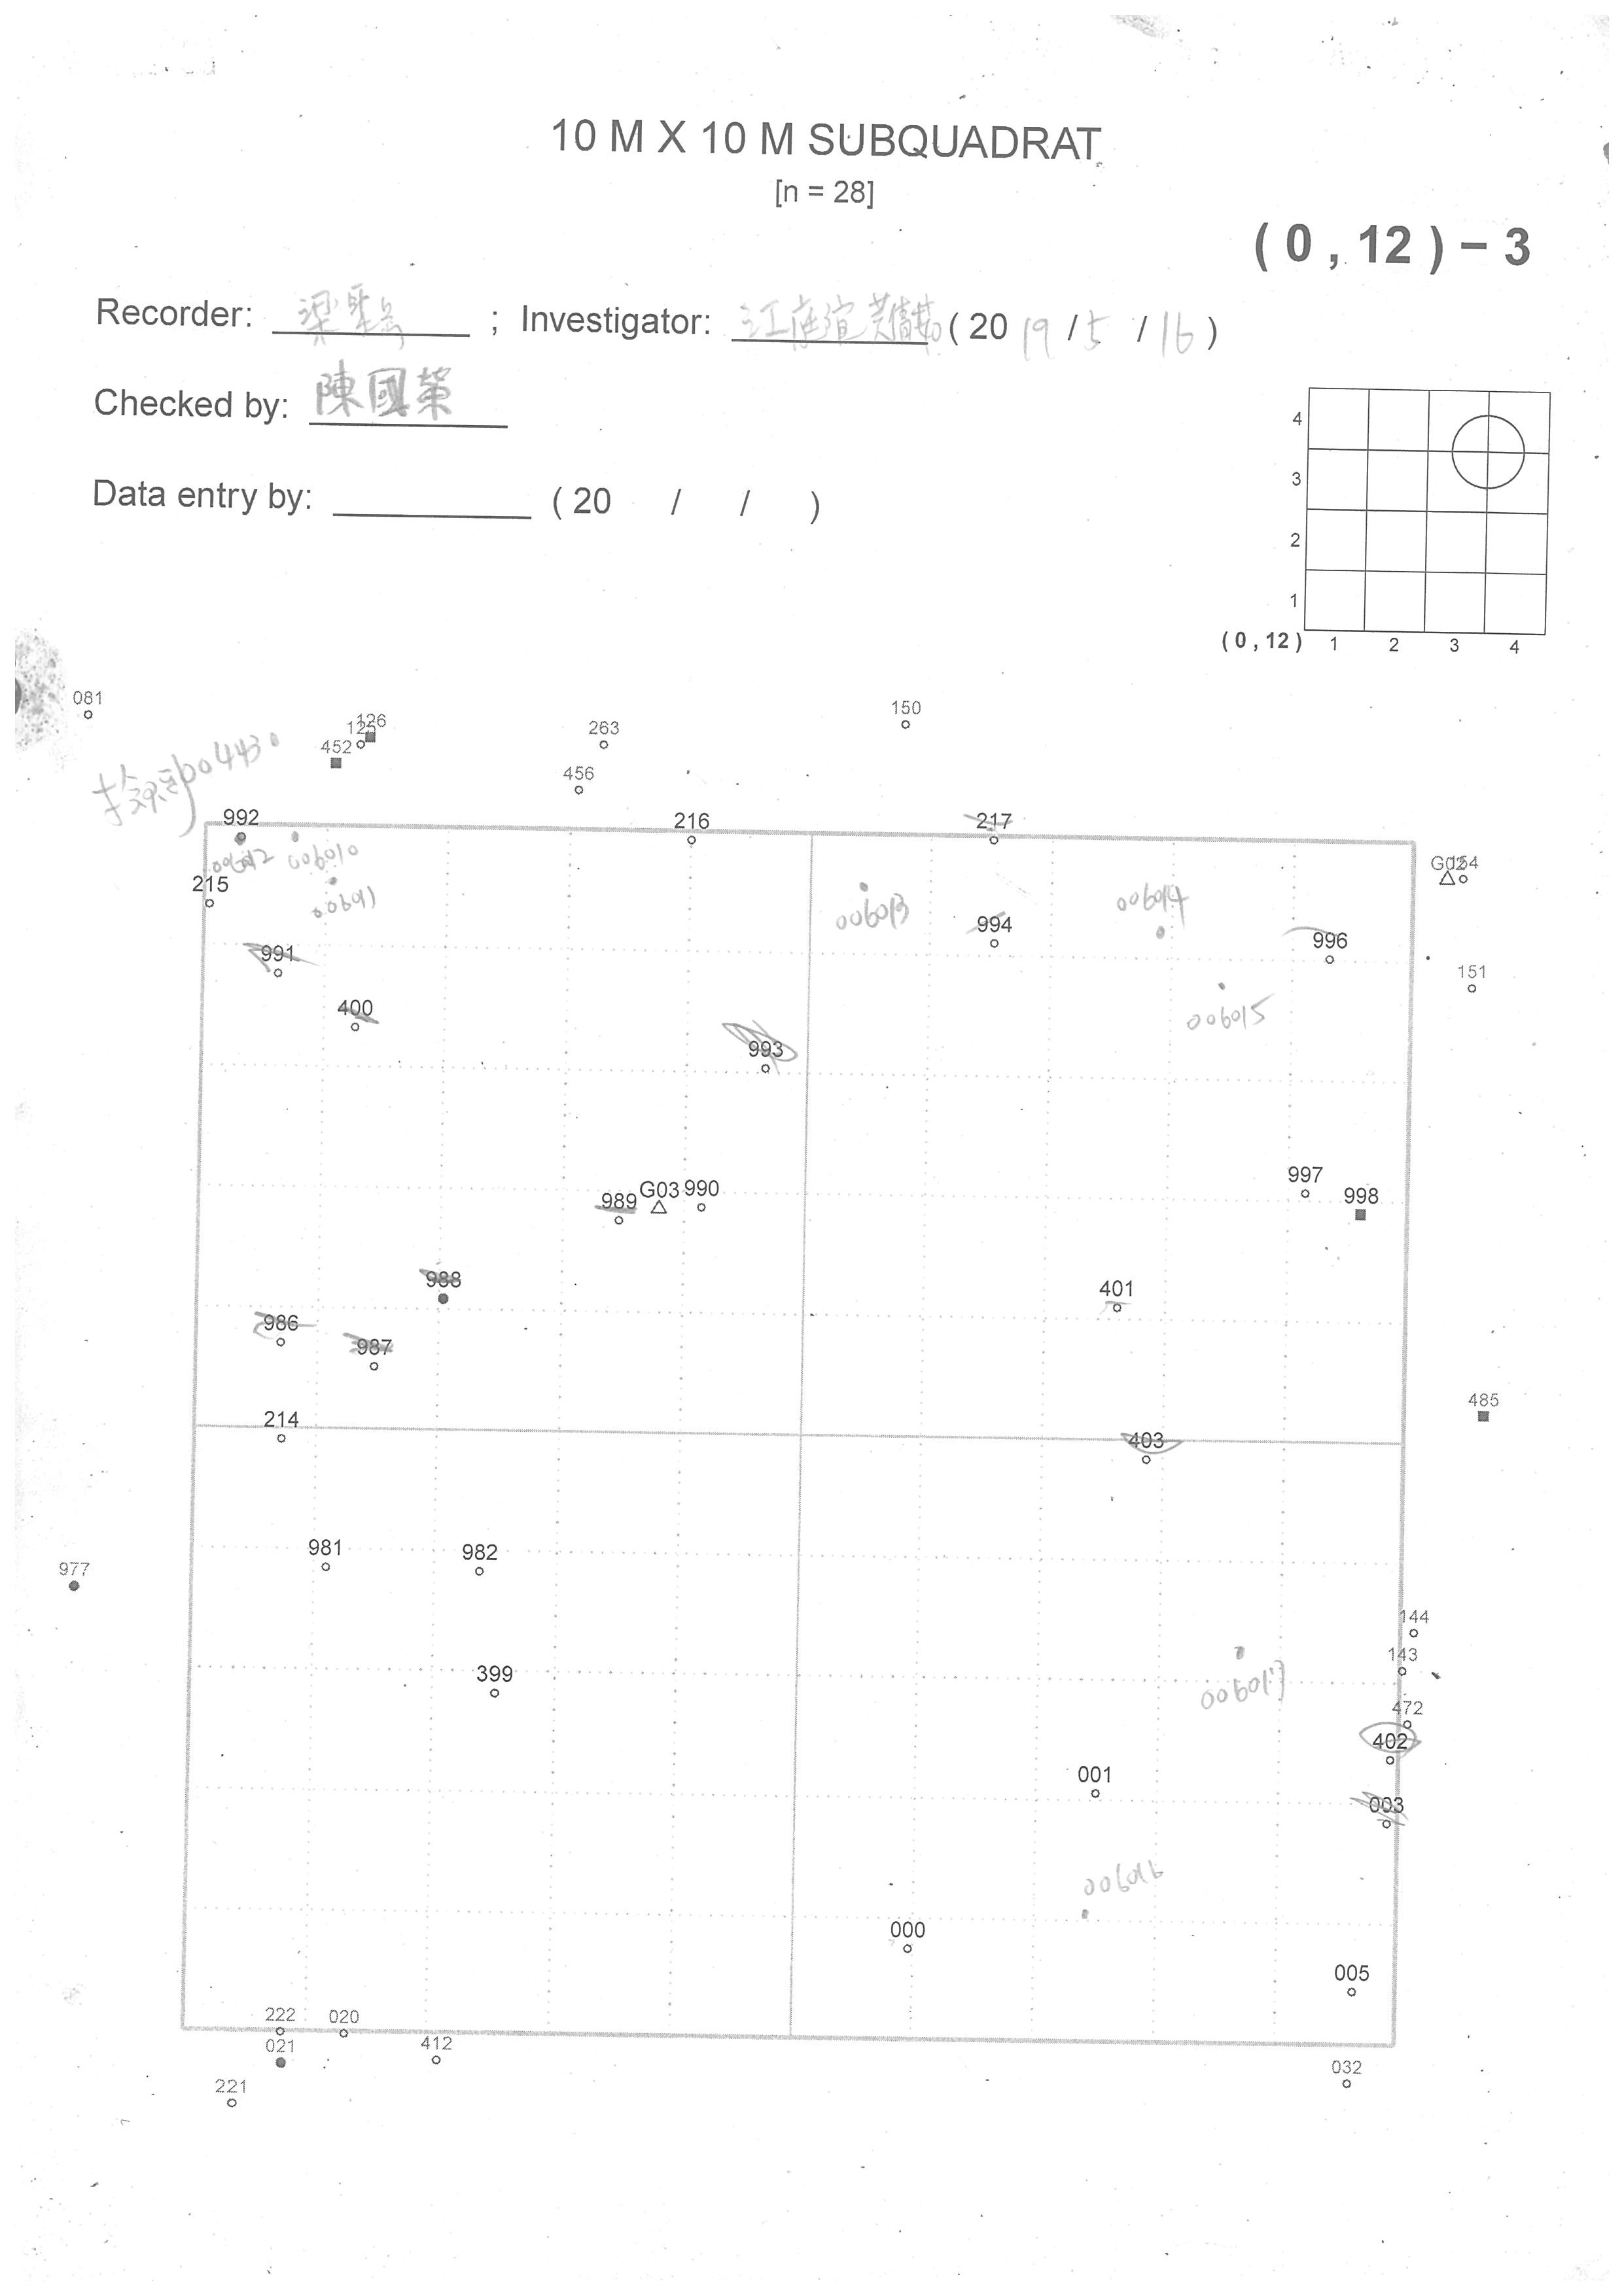 10 M X 10 M SUBQUADRAT
[n = 28]
( 0 , 12 ) – 3
Recorder: ; Investigator: ( 20 19 / 5 / 16 )
Checked by: 陳國榮
Data entry by: ( 20 / / )
4
3
2
1
( 0 , 12 ) 1 2 3 4
081
150
126
125
263
452
456
04430
992
216
217
006012 006010
215
006011
G02
154
006013
006014
994
996
991
151
400
006015
993
997
998
989 G03 990
988
401
986
987
485
214
403
981
982
977
144
143
399
006017
472
402
001
003
006016
000
005
222 020
021
412
032
221